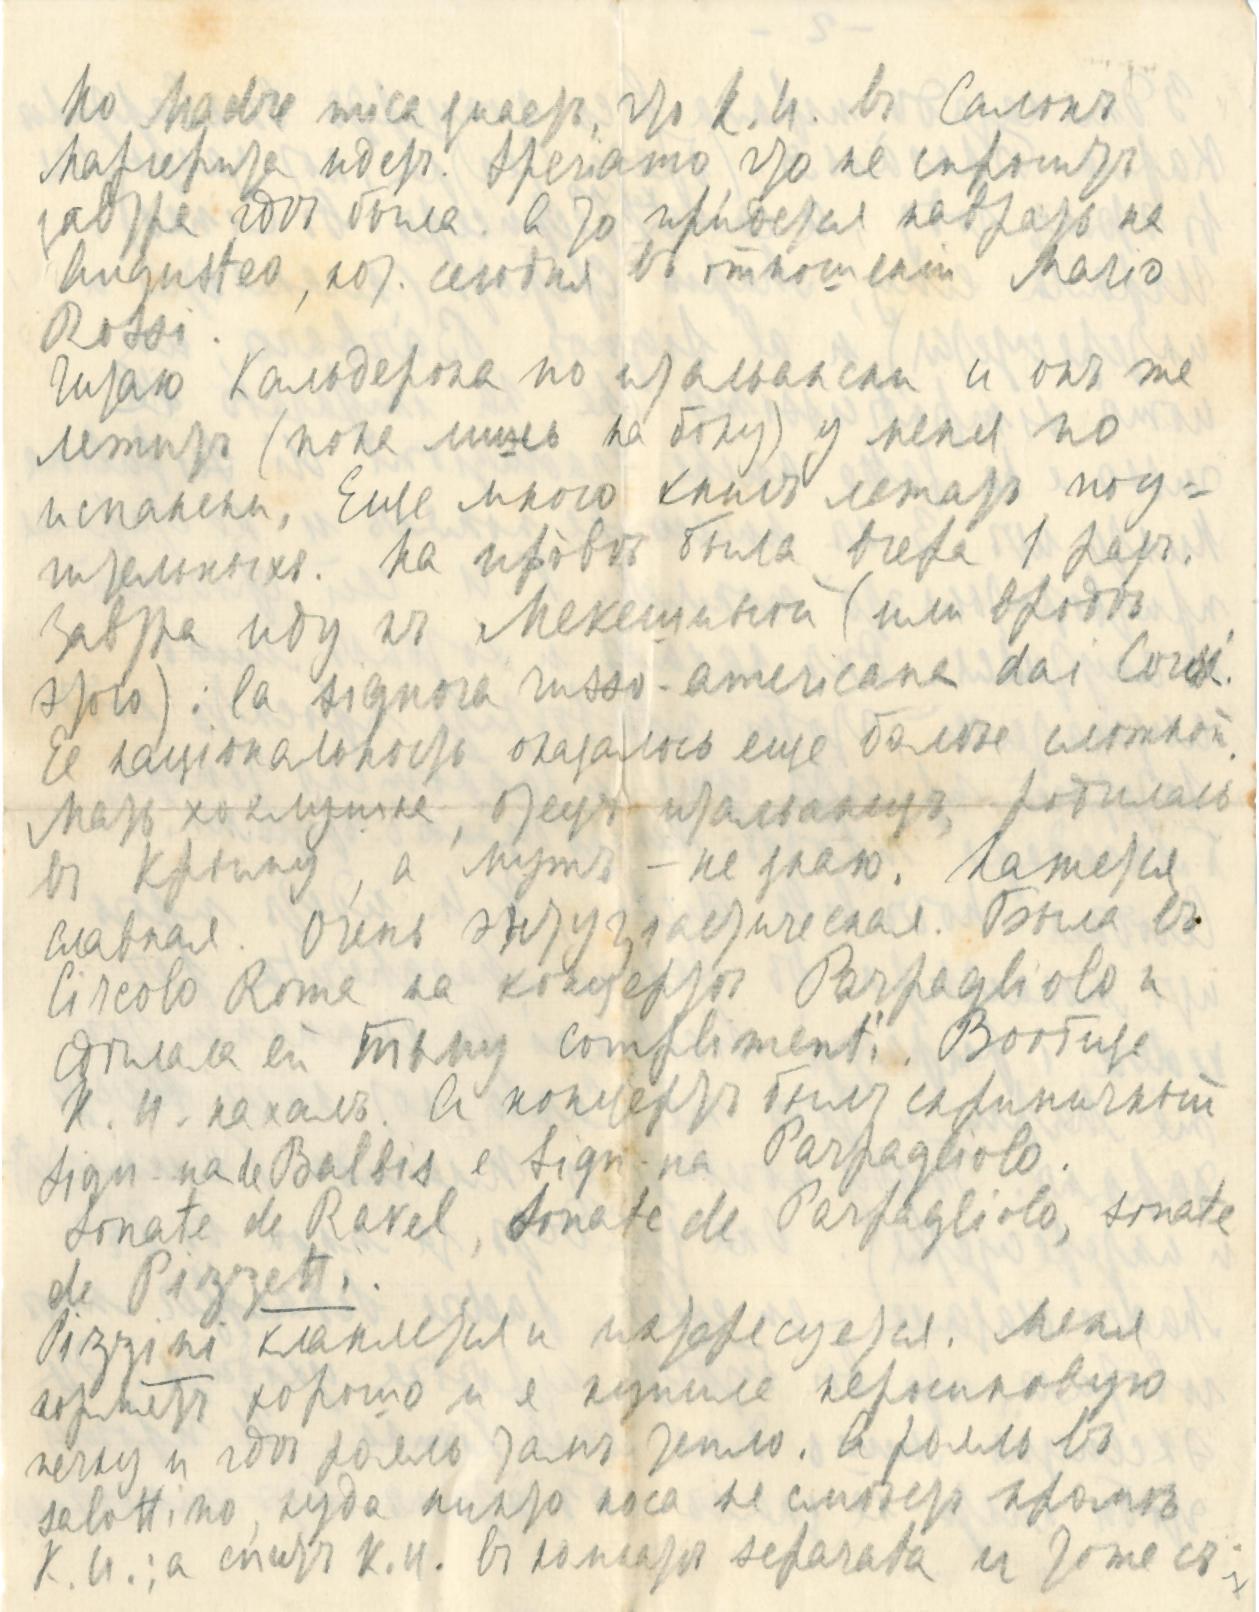 Но Madre mica знаетъ, что К.И. въ Салонъ
Маргерита идетъ. Speriamo что не спроситъ
завтра гдѣ была. А то придется наврать на
Augusteo, кот. сегодня въ отношенiи Mario
Rossi.
Читаю Кальдерона по итальянски и онъ же
лежитъ (пока лишь на боку) у меня по
испански. Еще много книгъ лежатъ поу-
чительныхъ. На пробѣ была вчера 1 разъ.
Завтра иду къ Мекешиной (или вродѣ
этого): la signora russo-americana dai Corsi.
Ее нацiональность оказалось еще болѣе сложной.
Мать хохлушка, отецъ итальянецъ, родилась
въ Крыму, а мужъ – не знаю. Кажется
славная. Очень энтузiастическая. Была въ
Circolo Roma на концертѣ Parpagliolo и
сдѣлала ей тьму complimenti. Вообще
К.И. нахалъ. А концертъ былъ скрипичный
Sign-na de Balbis e Sign-na Parpagliolo.
Sonate de Ravel, Sonate de Parpagliolo, sonate
de Pizzetti.
Pizzini кланяется и интересуется. Меня
кормятъ хорошо и я купила керосиновую
печку и гдѣ рояль тамъ тепло. А рояль въ
salottino, куда никто носа не смѣетъ кромѣ
К.И.; а спитъ К.И. въ комнатѣ separata и тоже съ